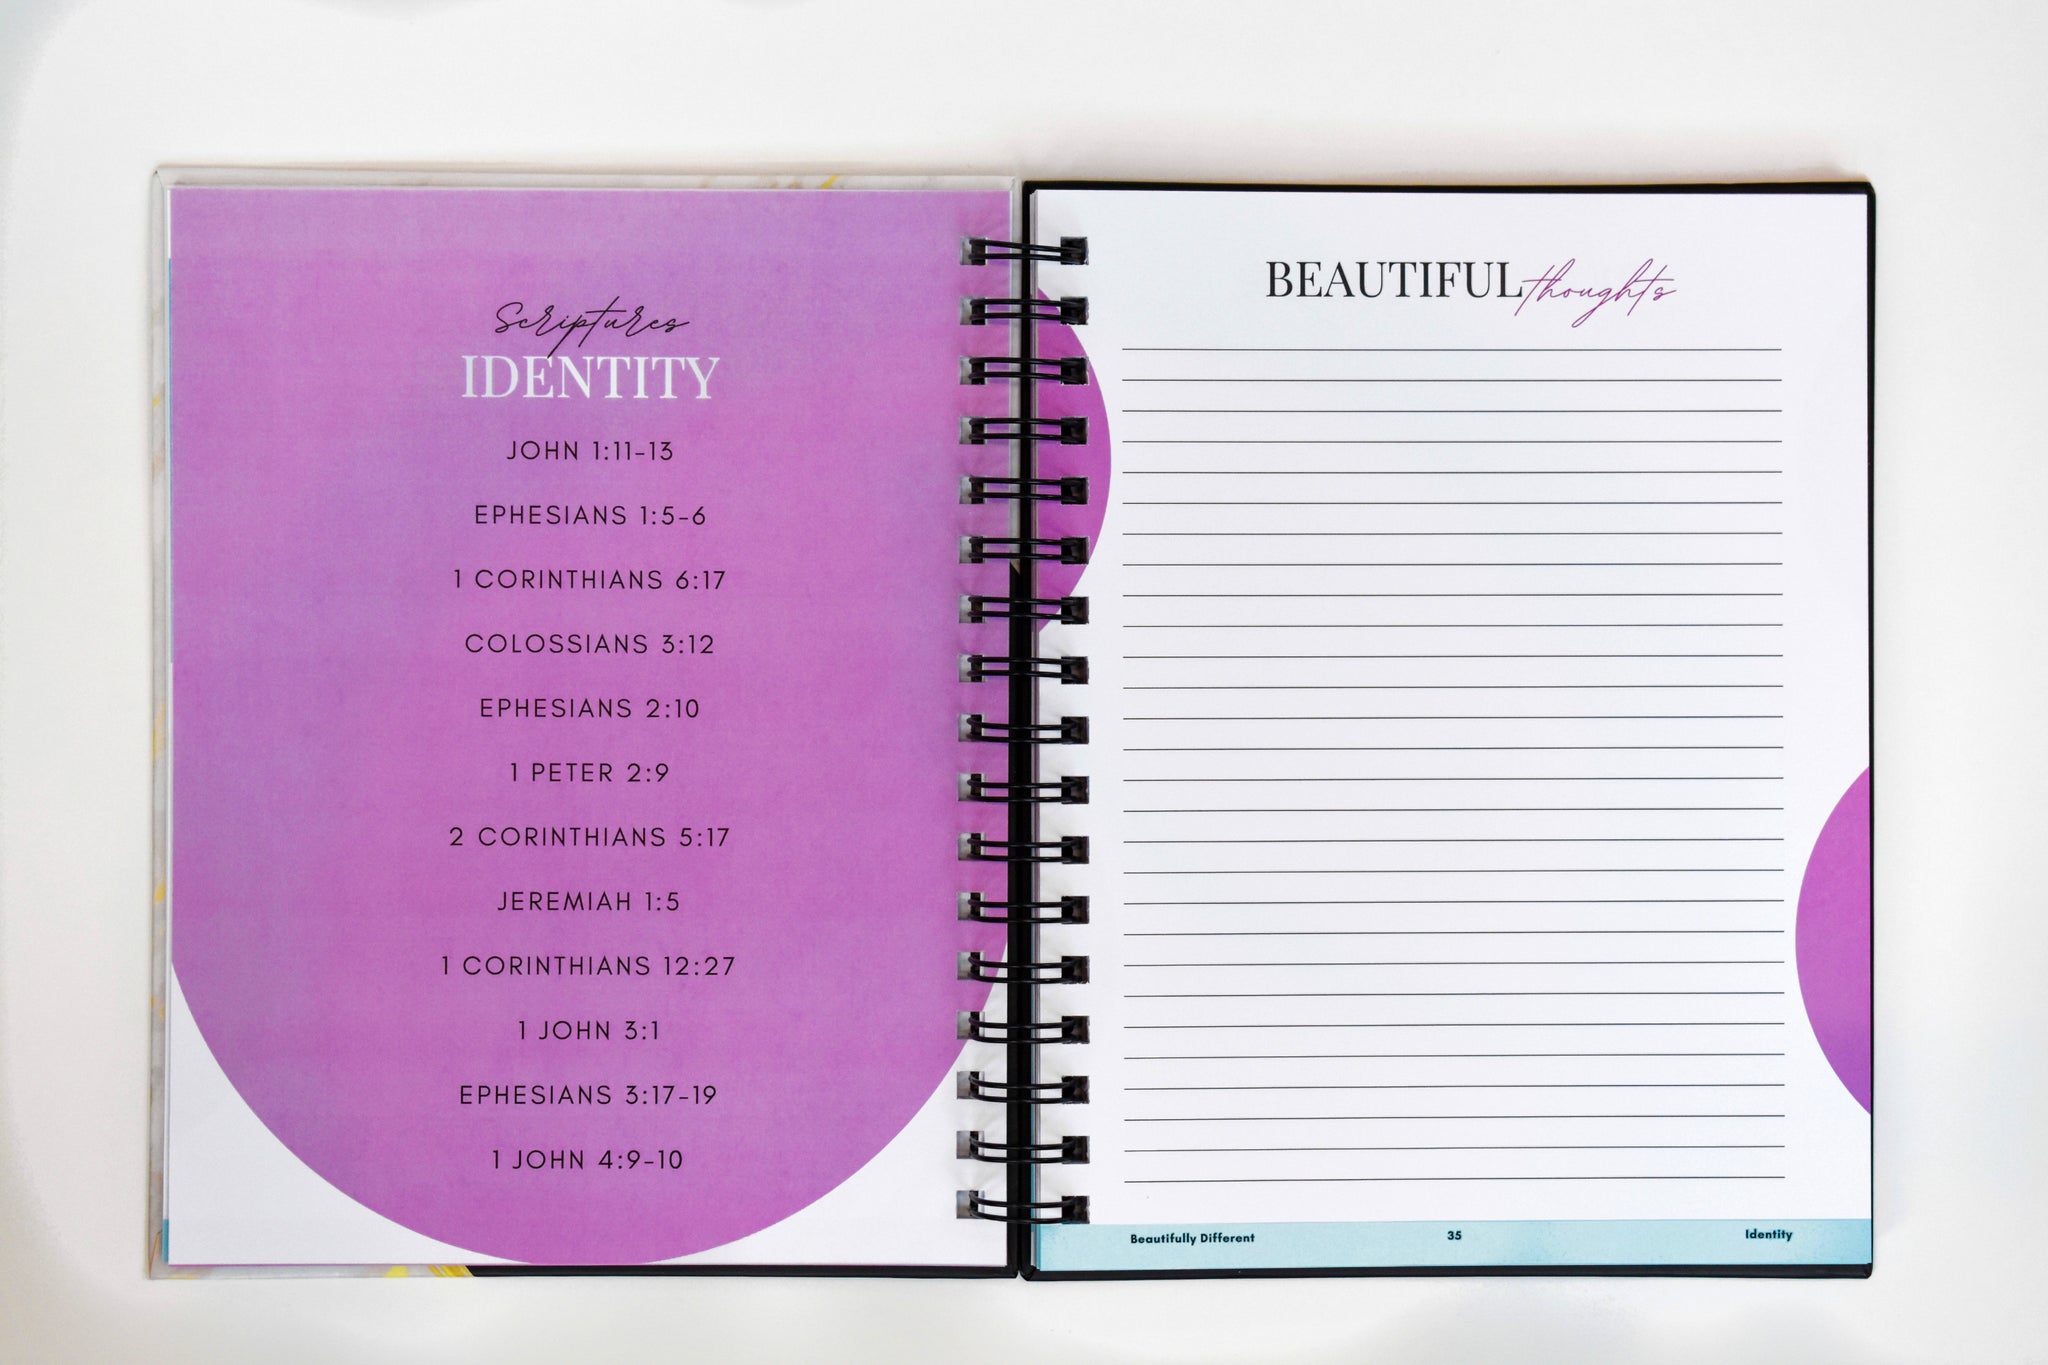 Scriptures
IDENTITY
JOHN 1:11-13
EPHESIANS 1:5-6
1 CORINTHIANS 6:17
COLOSSIANS 3:12
EPHESIANS 2:10
1 PETER 2:9
2 CORINTHIANS 5:17
JEREMIAH 1:5
1 CORINTHIANS 12:27
1 JOHN 3:1
EPHESIANS 3:17-19
1 JOHN 4:9-10
BEAUTIFUL thoughts
Beautifully Different 35 Identity